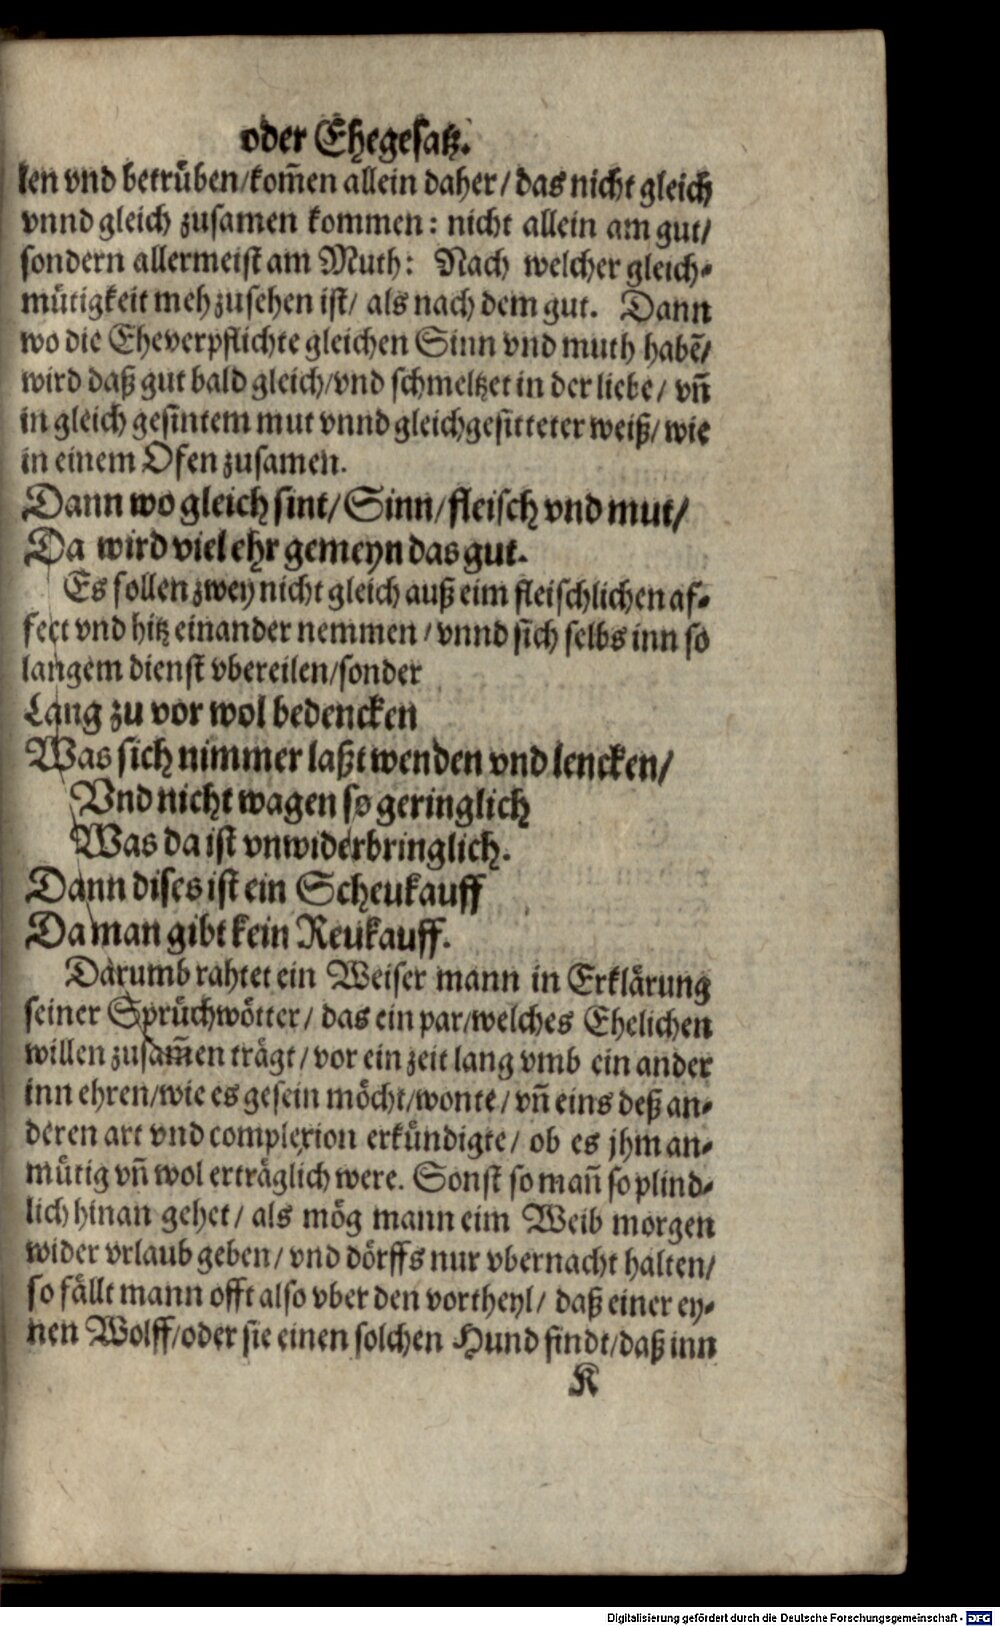 oder Ehegesatz.
len vnd betrüben/kom̃en allein daher/das nicht gleich
vnnd gleich zusamen kommen: nicht allein am gut/
sondern allermeist am Muth: Nach welcher gleich-
mütigkeit meh zusehen ist/ als nach dem gut. Dann
wo die Eheverpflichte gleichen Sinn vnd muth habẽ/
wird daß gut bald gleich/vnd schmeltzet in der liebe/ vñ
in gleich gesintem mut vnnd gleichgesitteter weiß/ wie
in einem Ofen zusamen.
Dann wo gleich sint/ Sinn/fleisch vnd mut/
Da wird viel ehr gemeyn das gut.
Es sollen zwey nicht gleich auß eim fleischlichen af-
fect vnd hitz einander nemmen/vnnd sich selbs inn so
langem dienst vbereilen/sonder
Lang zu vor wol bedencken
Was sich nimmer laßt wenden vnd lencken/
Vnd nicht wagen so geringlich
Was da ist vnwiderbringlich.
Dann dises ist ein Scheukauff
Da man gibt kein Reukauff.
Darumb rahtet ein Weiser mann in Erklärung
seiner Sprüchwötter/ das ein par/welches Ehelichen
willen zusam̃en trägt/vor ein zeit lang vmb ein ander
inn ehren/wie es gesein möcht/wonte/ vñ eins deß an-
deren art vnd complexion erkündigte/ ob es jhm an-
mütig vñ wol erträglich were. Sonst so mañ so plind-
lich hinan gehet/ als mög mann eim Weib morgen
wider vrlaub geben/ vnd dörffs nur vbernacht halten/
so fällt mann offt also vber den vortheyl/ daß einer ey-
nen Wolff/oder sie einen solchen Hund findt/daß inn
K
Digitalisierung gefördert durch die Deutsche Forschungsgemeinschaft - DFG